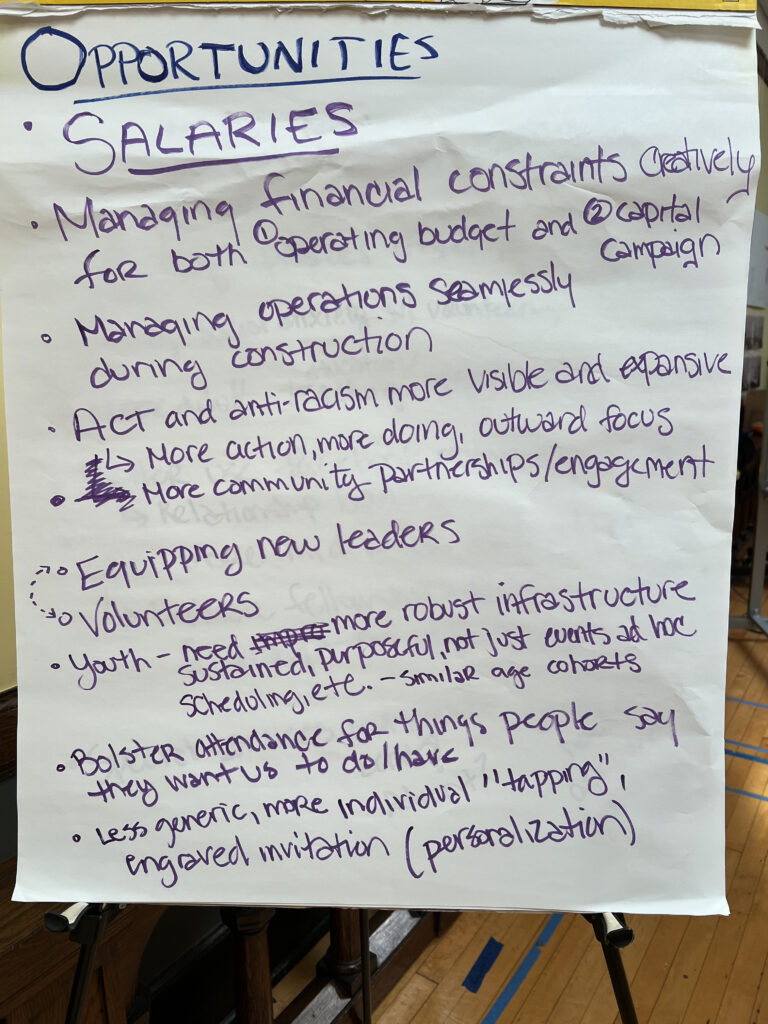 OPPORTUNITIES
• SALARIES
• Managing financial constraints creatively
for both ① operating budget and ② capital
campaign
• Managing operations seamlessly
during construction
• ACT and anti-racism more visible and expansive
↳ More action, more doing, outward focus
• More community partnerships/engagement
• Equipping new leaders
• Volunteers
• Youth - need more robust infrastructure
sustained, purposeful, not just events ad hoc
scheduling, etc. - similar age cohorts
• Bolster attendance for things people say
they want us to do/have
• Less generic, more individual "tapping",
engraved invitation (personalization)